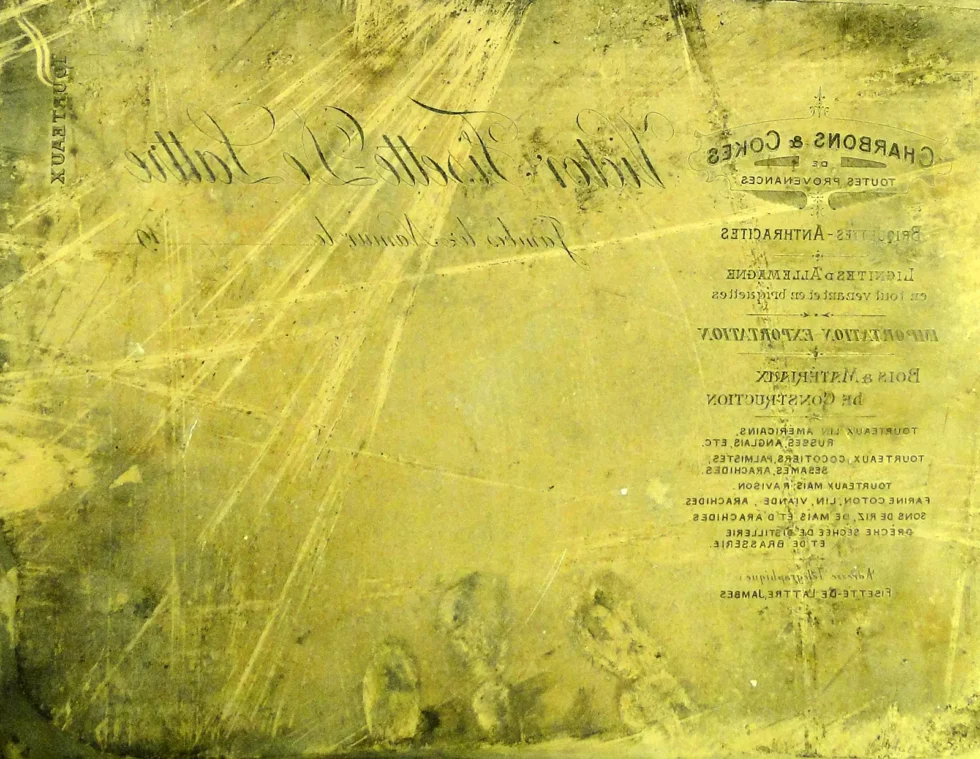 CHARBONS & COKES
DE
TOUTES PROVENANCES
BRIQUETTES-ANTHRACITES
LIGNITES D'ALLEMAGNE
en tout venant et en briquettes
IMPORTATION-EXPORTATION
BOIS & MATERIAUX
DE CONSTRUCTION
TOURTEAUX LIN AMERICAINS,
RUSSES, ANGLAIS, ETC.
TOURTEAUX COCOTIERS, PALMISTES,
SESAMES, ARACHIDES.
TOURTEAUX MAIS, RAVISON.
FARINE COTON, LIN, VIANDE, ARACHIDES
SONS DE RIZ, DE MAIS ET D'ARACHIDES
DRÈCHE SECHÉE DE DISTILLERIE
ET DE BRASSERIE.
Adresse Télégraphique:
FISETTE-DE LATTRE, JAMBES
Victor Fisette-De Lattre
Jambes lez-Namur, le 19
TOURTEAUX